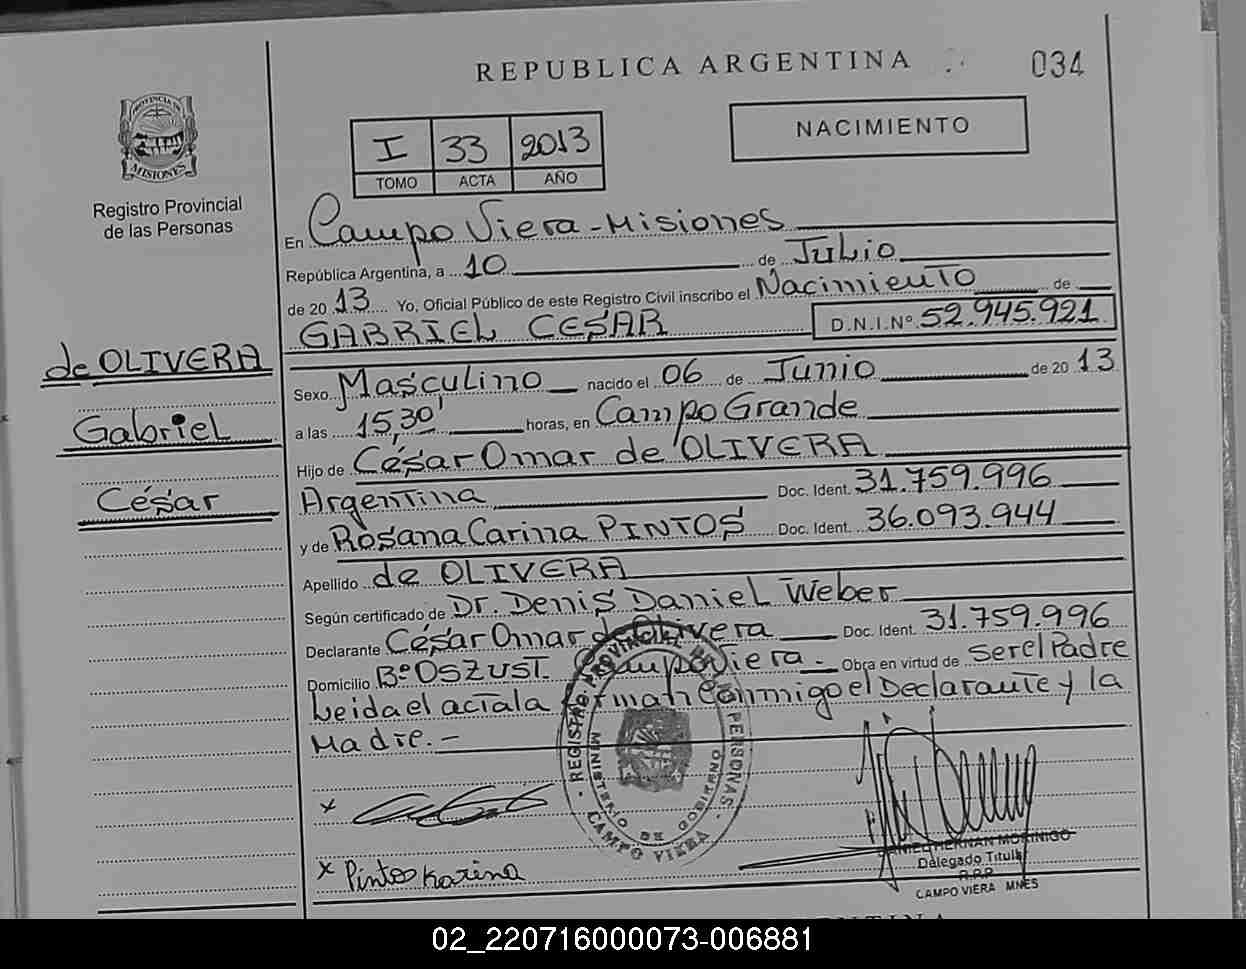 REPUBLICA ARGENTINA
034
PROVINCIA DE
MISIONES
Registro Provincial
de las Personas
I 33 2013
TOMO ACTA AÑO
NACIMIENTO
En Campo Viera - Misiones
República Argentina, a 10 de Julio
de 20 13 Yo, Oficial Público de este Registro Civil inscribo el Nacimiento de
GABRIEL CESAR D.N.I.Nº 52.945.921
de OLIVERA
Gabriel
César
Sexo Masculino nacido el 06 de Junio de 20 13
a las 15,30' horas, en Campo Grande
Hijo de César Omar de OLIVERA
Argentina Doc. Ident. 31.759.996
y de Rosana Carina PINTOS Doc. Ident. 36.093.944
Apellido de OLIVERA
Según certificado de Dr. Denis Daniel Weber
Declarante César Omar de Olivera Doc. Ident. 31.759.996
Domicilio Bº OSZUST. Campo Viera - Obra en virtud de ser el Padre
Leida el acta la firman Conmigo el Declarante y la
Madre. -
REGISTRO PROVINCIAL DE LAS PERSONAS
MINISTERIO DE GOBIERNO
CAMPO VIERA
x
x Pintos Karina
DANIEL HERNAN MORINIGO
Delegado Titular
R.P.P.
CAMPO VIERA MNES
02_220716000073-006881